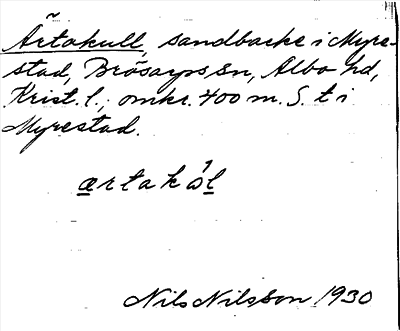 Ärtakull, sandbacke i Myre-
stad, Brösarps sn, Albo hd,
Krist. l., omkr. 400 m. S. t i
Myrestad.
ærtakål
Nils Nilsson 1930